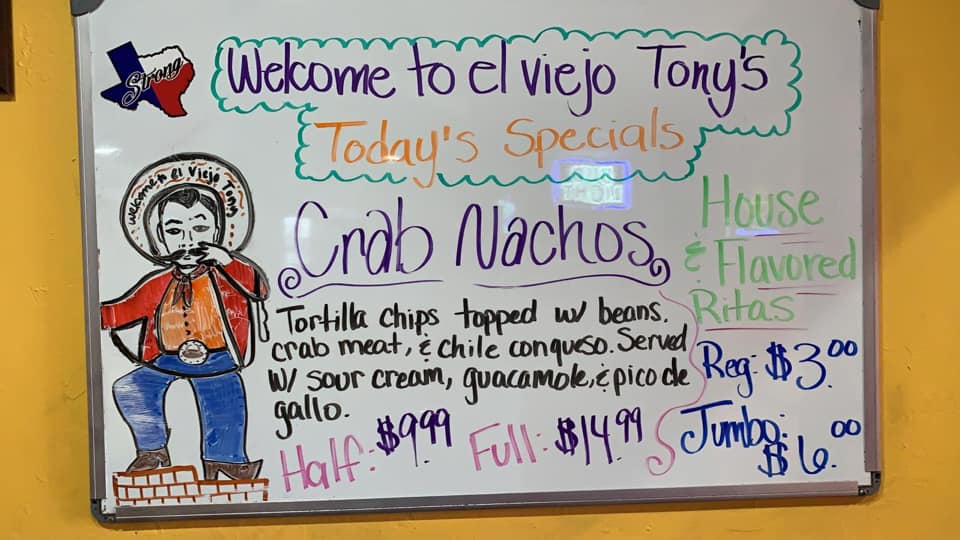 Strong
Welcome to el viejo Tony's
Today's Specials
welcome to el viejo Tony
Crab Nachos
Tortilla chips topped w/ beans.
crab meat, & chile conqueso. Served
w/ sour cream, guacamole, & pico de
gallo.
Half: $9.99 Full: $14.99
House
& Flavored
Ritas
Reg: $3.00
Jumbo:
$6.00